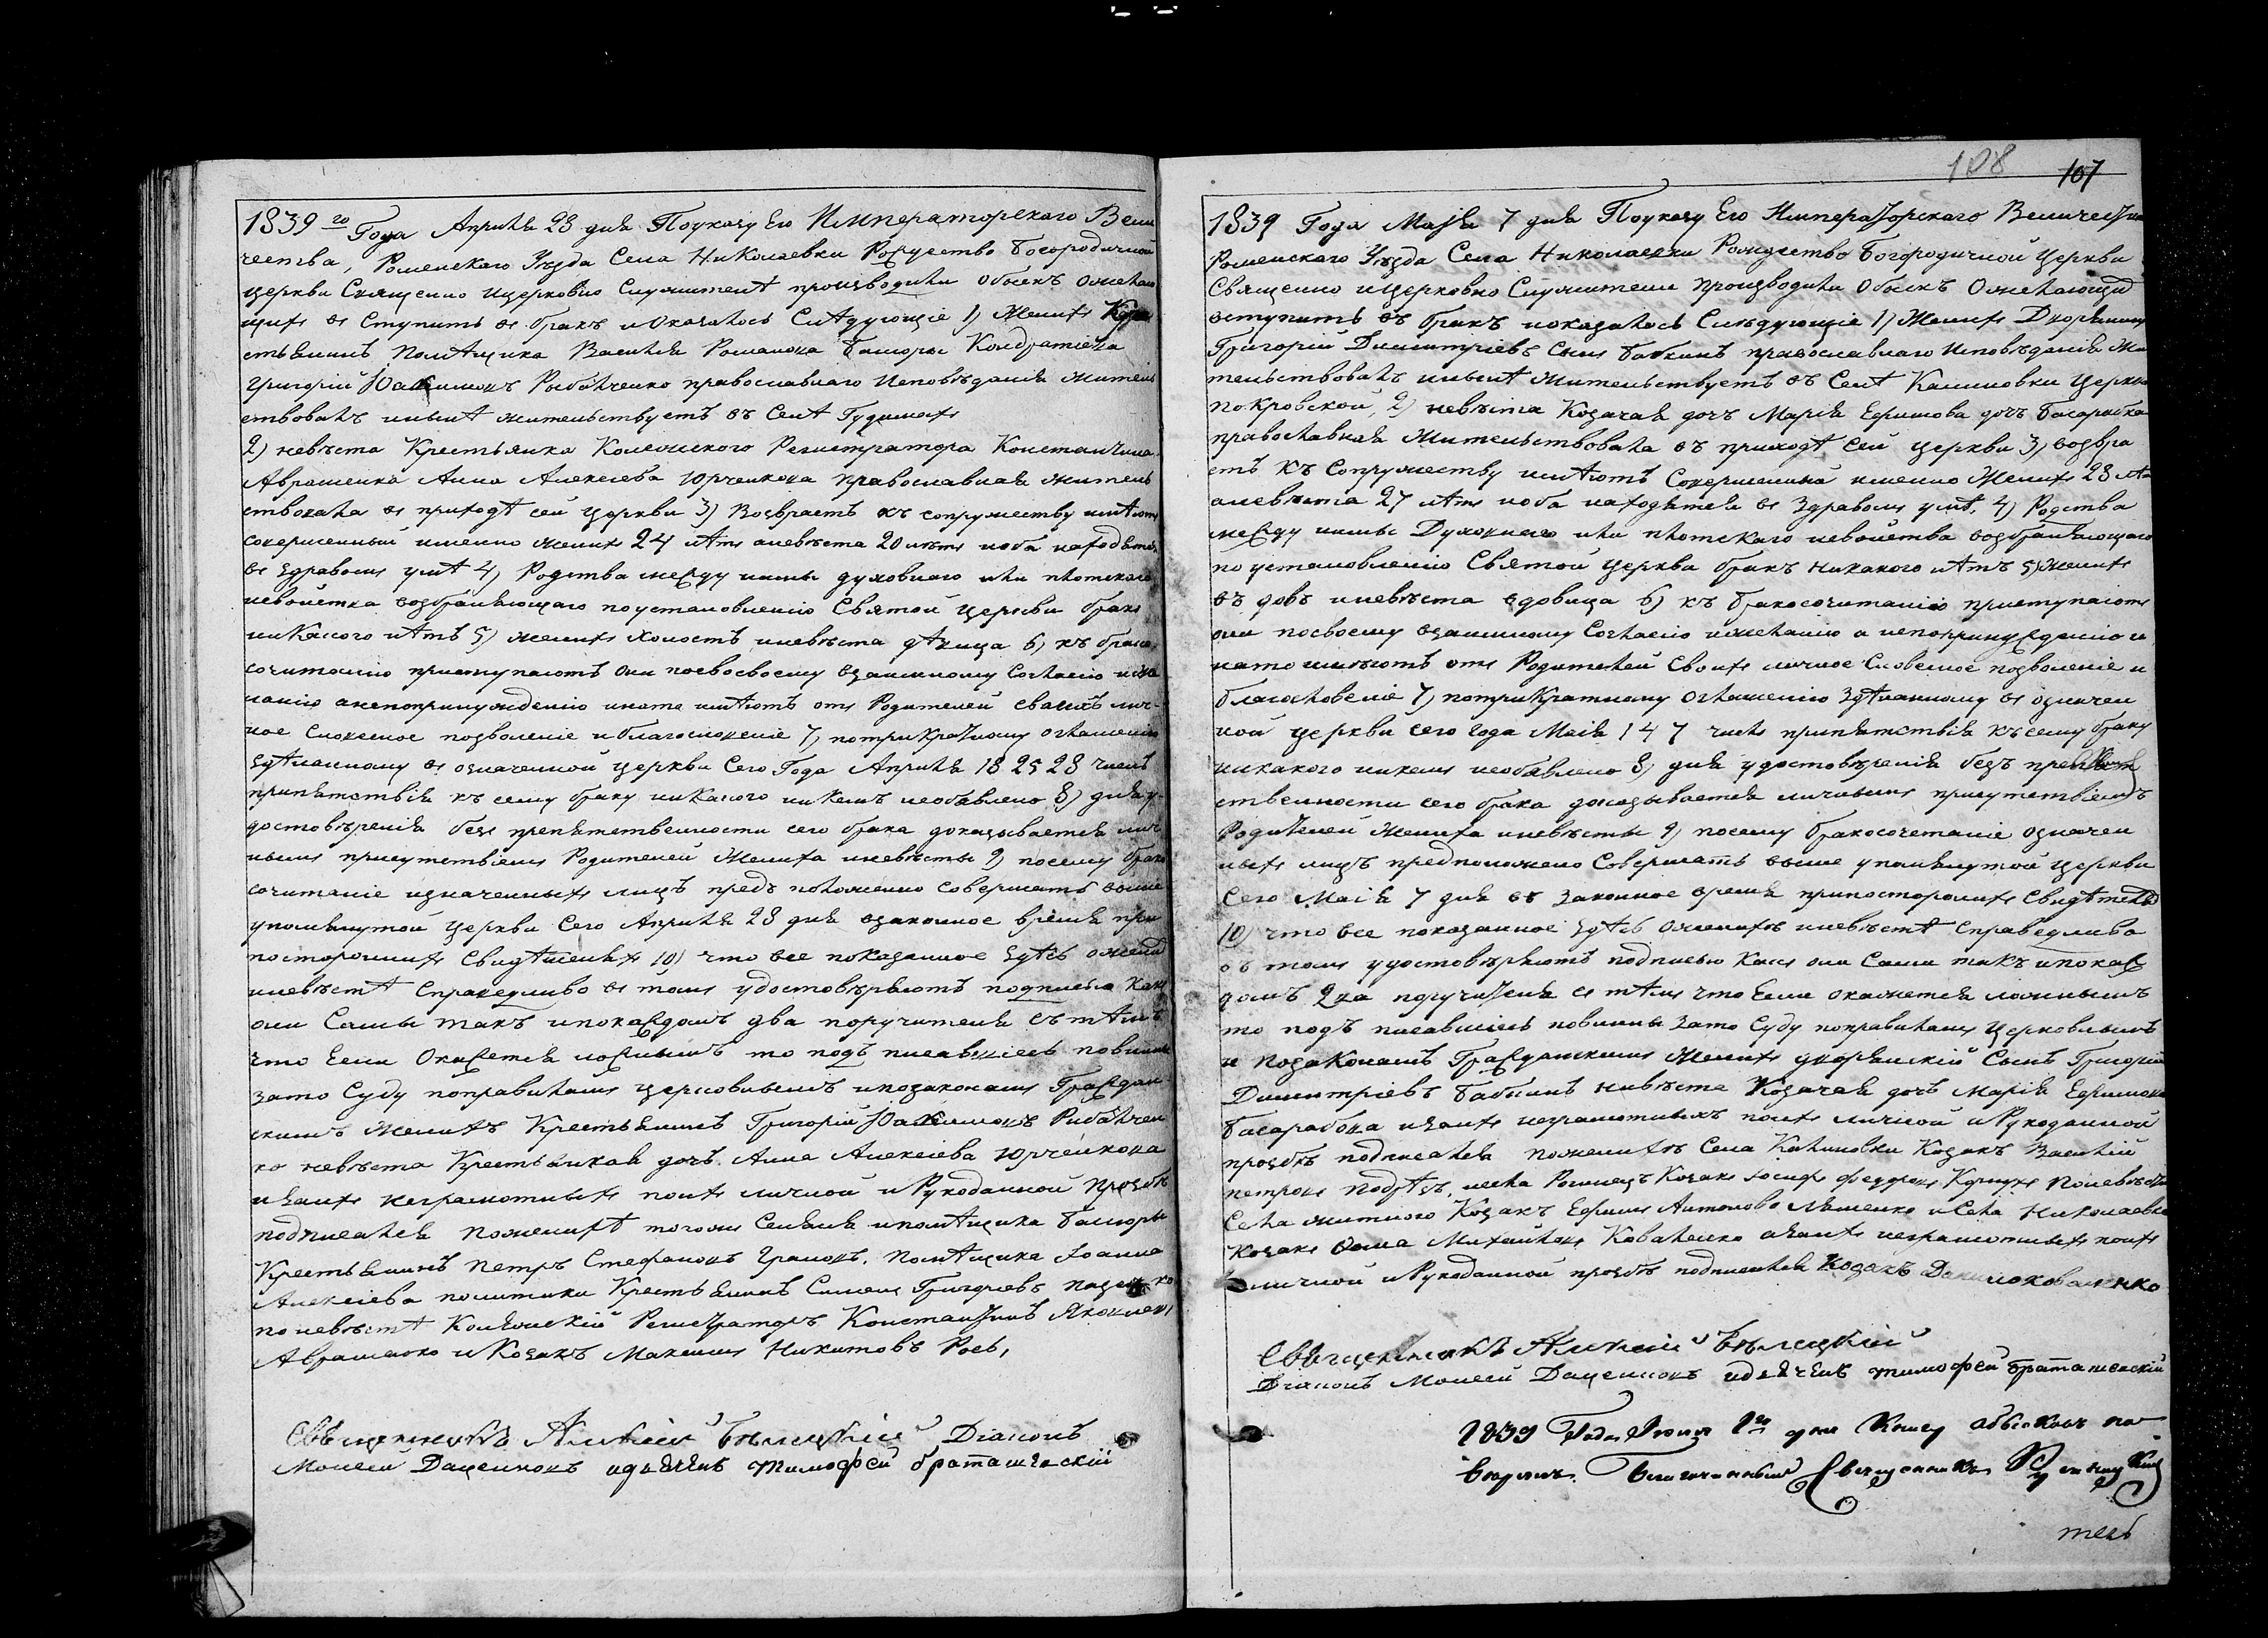 1839го Года Апреля 28 дня Поуказу Его Императорского Вели
чества, Роменскаго Уѣзда Села Николаевки Рождество Богородичной
церкви Священно ицерковно Служителѣ производили обыскъ ожелаю
щихъ въ Ступить въ бракъ иОказалось Слѣдующіе 1) Женихъ Кре
стьянинъ Помѣщика Василія Романова Башоры Кондратіева
Григорій Рыбалченко православнаго Исповѣданія жител
ствовалъ инынѣ жительствуетъ въ Селѣ Гудимахъ
2) невѣста Крестьянка Колежского Регистратора Константина
Аврашенка Анна Алексѣева Юрченкова православная жител
ствовала въ приходѣ сей церкви 3) Возврастъ къ сопружеству имѣютъ
совершенный именно женихъ 24 лѣтъ аневѣста 20 лѣтъ иоба находятся
въ здравомъ умѣ 4) Родства между ними духовнаго или плотскаго
исвойства возбраняющаго поустановленію Святой церкви бракъ
никакого нѣтъ 5) женихъ холостъ иневѣста дѣвица 6) къ брако
сочитанію приступаютъ Они посвоему взаимному Согласію иже
ланію анепопринужденію инато имѣютъ отъ Родителей своихъ лич-
ное Словесное позволеніе иблагословеніе 7) потрикратному оглашенію
здѣланному въ означенной церкви Сего Года Апреля 18 25 28 числъ
припятствія къ сему браку никакого никемъ необявлено 8) для у-
достовѣренія безъ препятственности сего брака доказывается лич
нымъ присутствіемъ Родителей Жениха иневѣсты 9) посему брако
сочитаніе изначенныхъ лицъ предъ положенно совершать выше
упомянутой церкви Сего Апреля 28 дня взаконное время при
постороннихъ Свидѣтеляхъ 10) что все показанное здѣсь ожених
иневѣстѣ Справедливо въ томъ удостовѣряютъ подписью какъ
они Сами такъ ипокаждомъ два поручителя съ тѣмъ
что Если Окажется ложнымъ то подъ писавшіесь повинны
зато Суду поправиламъ церковнымъ ипозаконамъ Граждан-
скимъ Женихъ Крестьянинъ Григорій Рибалчен
ко невѣста Крестьянкая дочъ Анна Алексѣева Юрченкова
изанихъ неграмотныхъ поихъ личной иРукоданной прозбѣ
подписался поженихѣ тогожъ Селенія ипомѣщика Башоры
Крестьянинъ Петръ Стефановъ Грановъ, помѣщика Іоанна
Алексѣева политики Крестьянинъ Симеонъ Григорѣвъ
поневѣстѣ Колѣжскій Регистраторъ Константинъ Яковлевъ
Аврашенко иКозакъ Максимъ Никитовъ Роев,
Священникъ Алексій Бѣлецкій Діаконъ
Моисей Даценковъ идьячекъ тимофей браташевскій
108 107
1839 Года Маія 7 дня Поуказу Его Императорского Величества
Роменского Уѣзда Села Николаевки Рождество Богородичной церкви
Священно ицерковно Служители производили обыскъ Ожелающихъ
вступить въ бракъ иоказалось Слѣдующіе 1) Женихъ Дворянинъ
Григорій Димитріевъ Сынъ Бабкинъ православнаго Исповѣданія жи
тельствовалъ инынѣ жительствуетъ въ Селѣ Калиновки церкви
Покровской, 2) невѣста Козачая дочъ Марія Ефимова дочъ басарабка
православная Жительствовала въ приходѣ сей церкви 3) возвра
стъ къ сопружеству имѣютъ Совершенный именно Женихъ 28 лѣ
аневѣста 27 лѣтъ иоба находятся въ Здравомъ умѣ, 4) Родства
между ними Духовнаго или плотскаго исвойства возбраняющаго
поустановленію Святой церкви бракъ никакого нѣтъ 5) женихъ
въ довъ иневѣста вдовица 6) къ бракосочитанію приступаютъ
они посвоему взаимному Согласію ижеланію а непопринужденію и
нато имѣютъ отъ Родителей Своихъ личное Словесное позволеніе и
благословеніе 7) потрикратному Оглашенію Здѣланному въ означен
ной церкви сего года Маія 1 4 7 числъ припятствія къ сему браку
никакого никемъ необявлено 8) для удостовѣренія безъ препят
ственности сего брака доказывается личнымъ присутствіемъ
Родителей Жениха иневѣсты 9) посему бракосочетаніе означен
ныхъ лицъ предположено Совершать выше упомянутой церкви
Сего Маія 7 дня въ Законное время припостороннихъ Свидѣтеляхъ
10) что все показанное здѣсь оженихѣ иневѣстѣ Справедливо
въ томъ удостовѣряютъ подписью Какъ они Сами такъ ипокаж
домъ 2ва поручителя съ тѣмъ что Если окажется ложнымъ
то подъ писавшіесь повинны Зато Суду поправиламъ Церковнымъ
и позаконамъ Гражданскимъ Женихъ дворянскій Сынъ Григорій
Димитріевъ бабкинъ Невѣста Козачая дочъ Марія Ефимова
басарабова изанихъ неграмотныхъ поихъ личной иРукоданной
прозбѣ подписался поженихѣ Села Калиновки Козакъ Василій
петровъ Козакъ Іосифъ федоровъ поневѣстѣ
Села житного Козакъ Ефимъ Антоновъ Ляшенко иСела Николаевки
Козакъ Фома Михайловъ Коваленко азанихъ неграмотныхъ поихъ
личной иРукоданной прозбѣ подписался Козакъ Данило коваленко
Священникъ Алексій Бѣлецкій
Діаконъ Моисей Даценковъ идьячекъ тимофей браташевскій
1839 Года Іюня 1го дня Книгу обысковъ по
вирялъ Благочинный Священникъ
тель